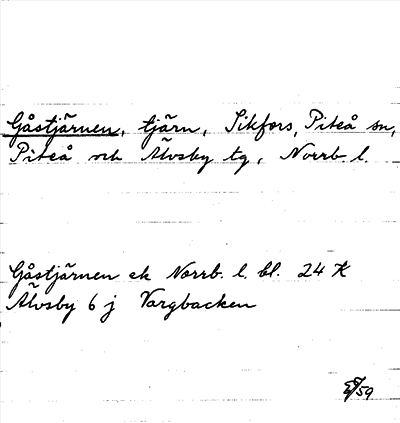 Gåstjärnen, tjärn, Sikfors, Piteå sn,
Piteå och Älvsby tg, Norrb. l.
Gåstjärnen ek Norrb. l. bl. 24 K
Älvsby 6 j Vargbacken
59